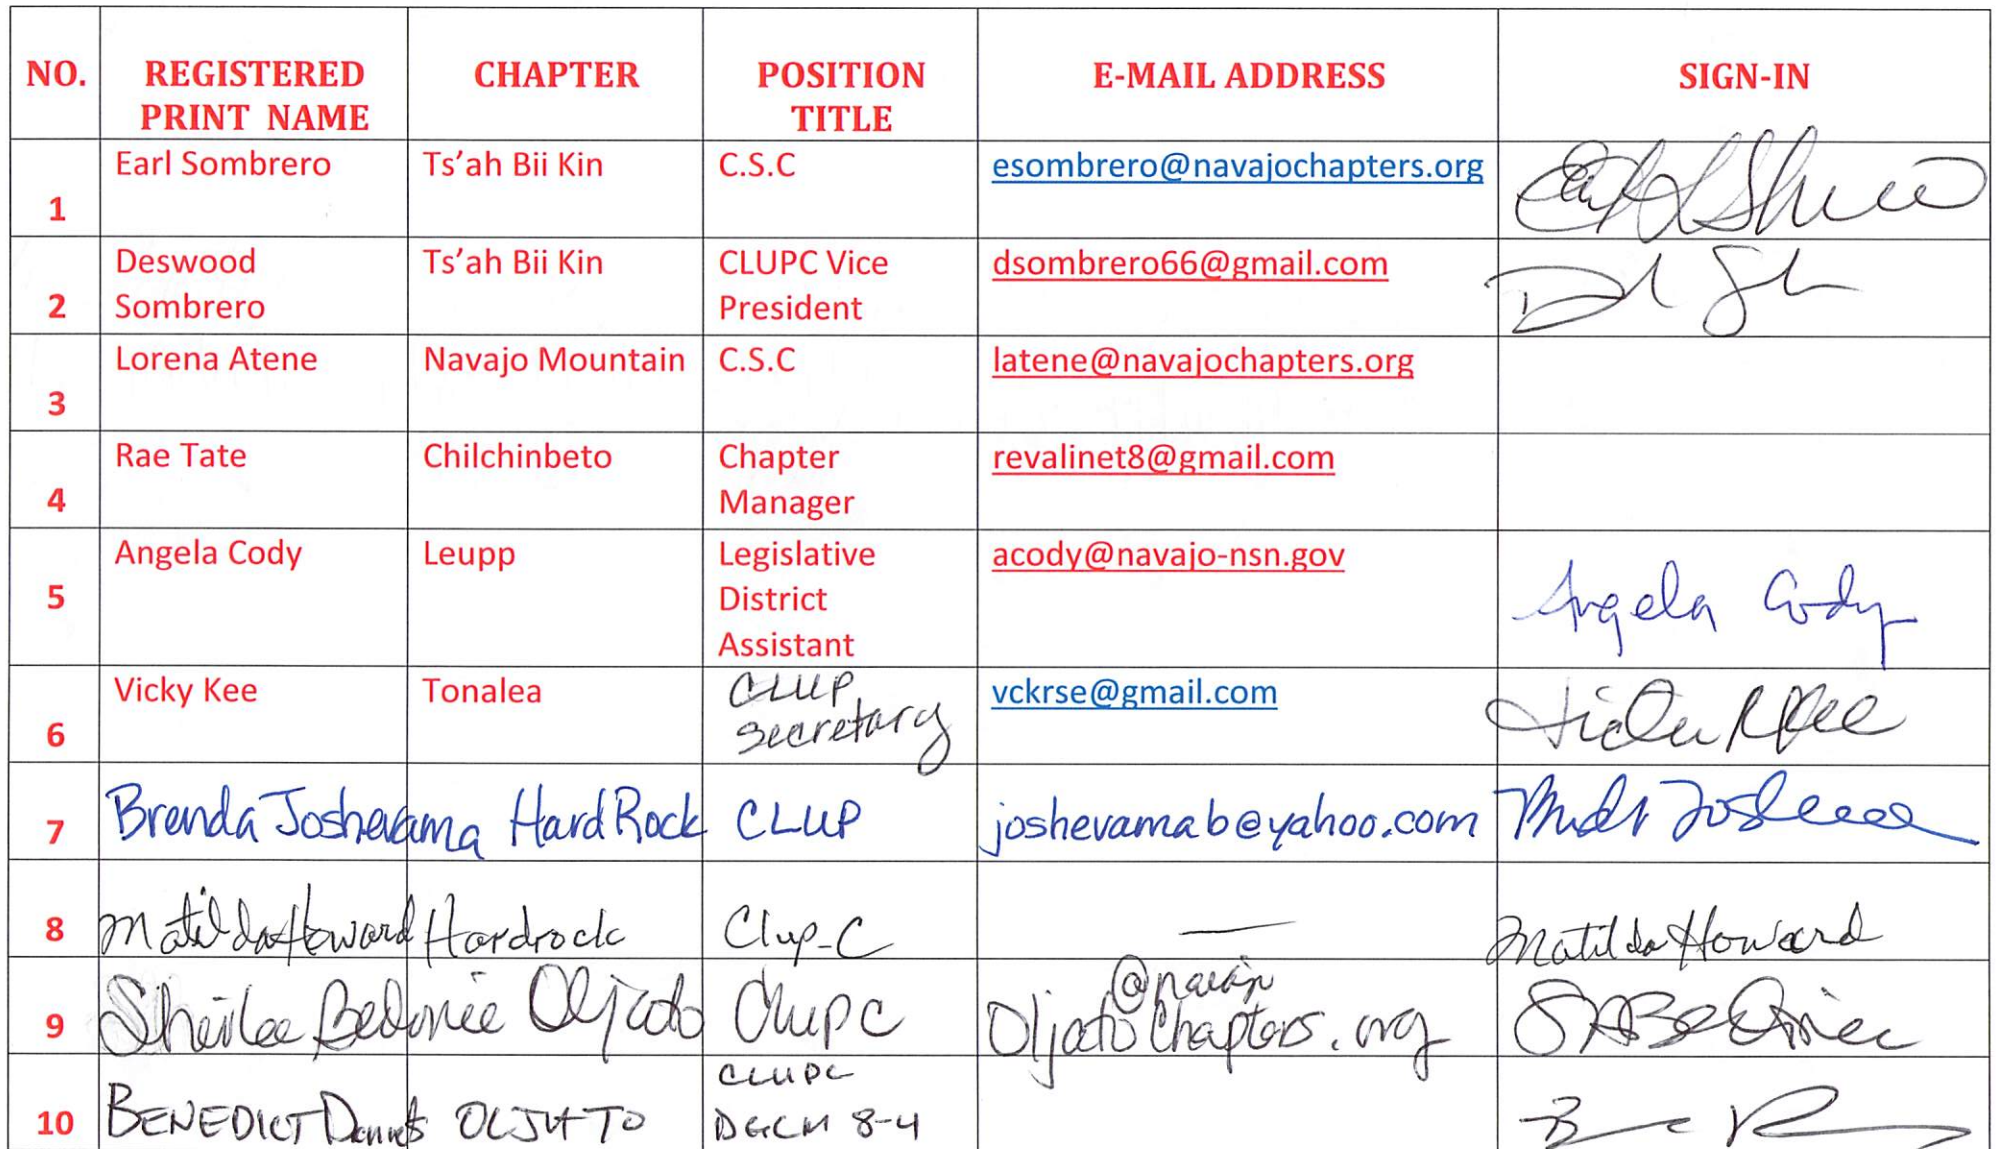 NO. REGISTERED PRINT NAME CHAPTER POSITION TITLE E-MAIL ADDRESS SIGN-IN
1 Earl Sombrero Ts'ah Bii Kin C.S.C esombrero@navajochapters.org
2 Deswood Sombrero Ts'ah Bii Kin CLUPC Vice President dsombrero66@gmail.com
3 Lorena Atene Navajo Mountain C.S.C latene@navajochapters.org
4 Rae Tate Chilchinbeto Chapter Manager revalinet8@gmail.com
5 Angela Cody Leupp Legislative District Assistant acody@navajo-nsn.gov Angela Cody
6 Vicky Kee Tonalea CLUP Secretary vckrse@gmail.com
7 Brenda Joshevama Hard Rock CLUP joshevamab@yahoo.com
8 Matilda Howard Hardrock Clup-C — Matilda Howard
9 Sheilee Bedonie Oljato Clupc Oljato@navajochapters.org
10 BENEDICT OLJATO CLUPC DGCM 8-4